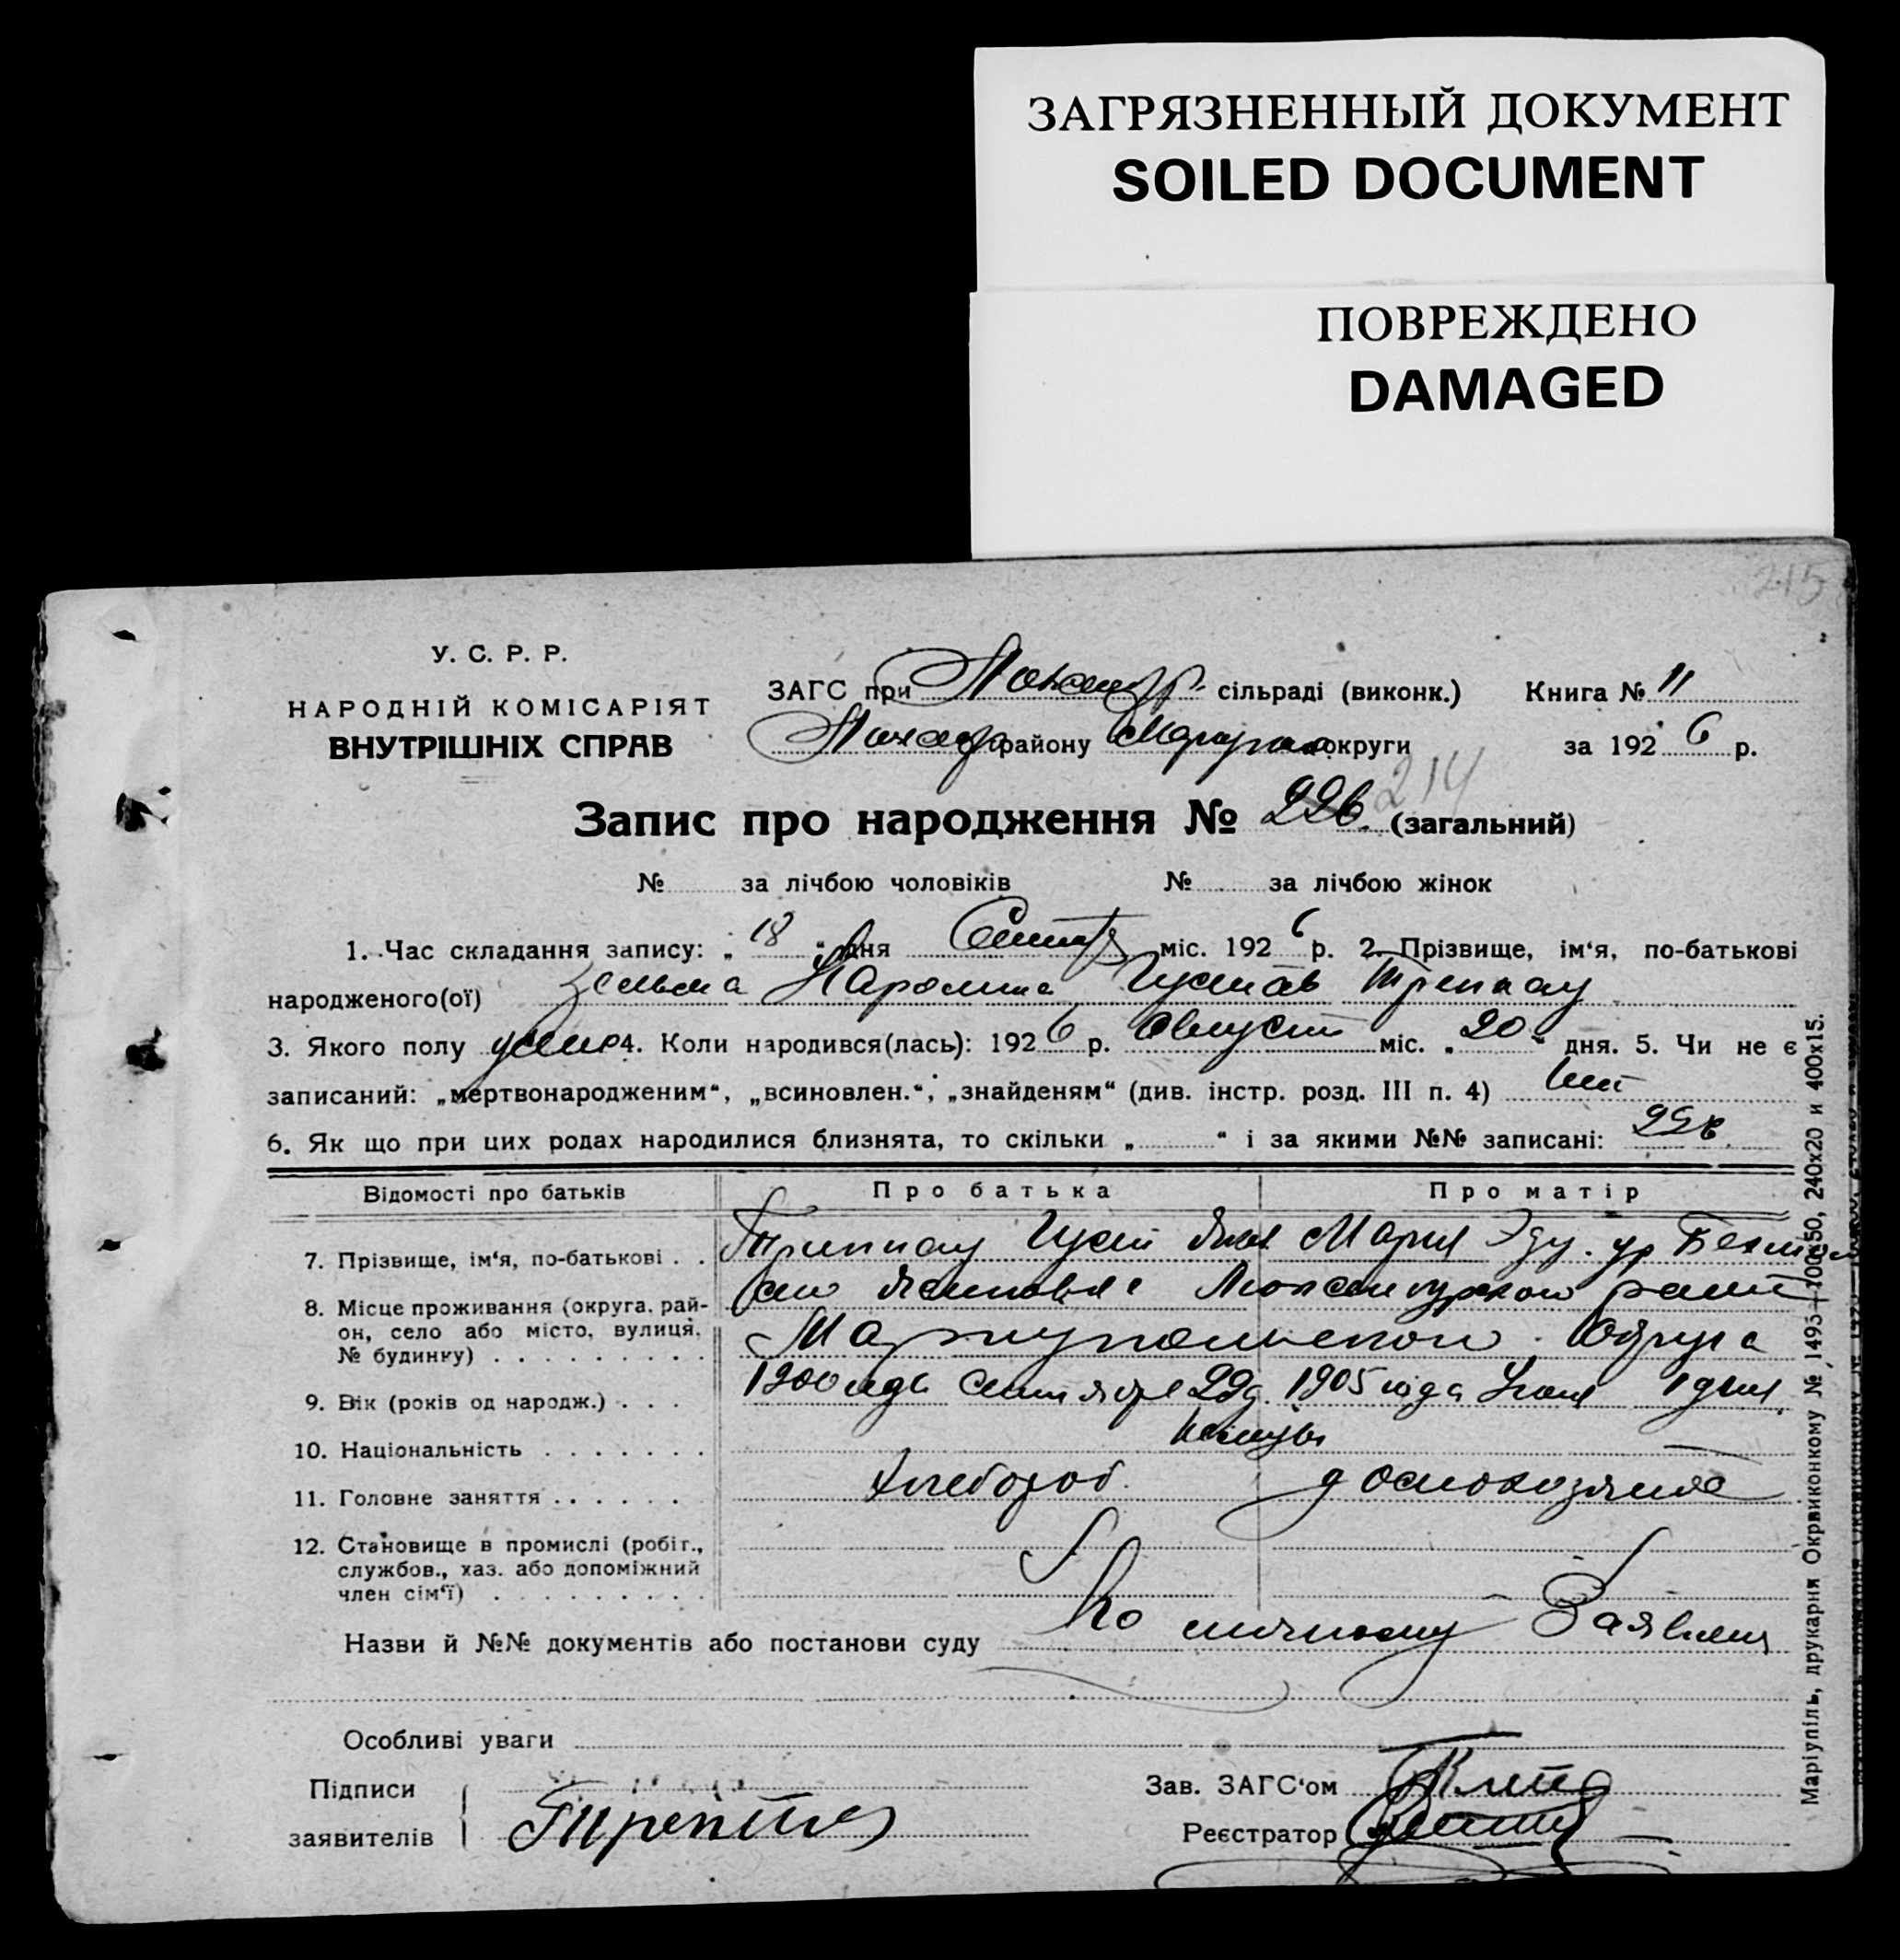 ЗАГРЯЗНЕННЫЙ ДОКУМЕНТ
SOILED DOCUMENT
ПОВРЕЖДЕНО
DAMAGED
215
У. С. Р. Р.
НАРОДНІЙ КОМІСАРІЯТ
ВНУТРІШНІХ СПРАВ
ЗАГС при сільраді (виконк.) Книга № 11
району округи за 1926 р.
214
Запис про народження № 226. (загальний)
№ за лічбою чоловіків № за лічбою жінок
1. Час складання запису: „18“ дня міс. 1926 р. 2. Прізвище, ім‘я, по-батькові
народженого(ої) Зельма Каролина Густав Треппау
3. Якого полу 4. Коли народився(лась): 1926 р. Август міс. „20“ дня. 5. Чи не є
записаний: „мертвонародженим“, „всиновлен.“, „знайденям“ (див. інстр. розд. III п. 4)
6. Як що при цих родах народилися близнята, то скільки „ “ і за якими №№ записані:
Відомості про батьків Про батька Про матір
7. Прізвище, ім‘я, по-батькові . . Треппау Густ Мария Эду. ур
8. Місце проживання (округа, рай-
он, село або місто, вулиця,
№ будинку) . . . . . . . . . Мариупольской Округа
9. Вік (років од народж.) . . . 1900 сентября 29д. 1905 года 1 дня
10. Національність . . . . . . . немцы
11. Головне заняття . . . . . . Хлебороб. домохозяйка
12. Становище в промислі (робіт.,
службов., хаз. або допоміжний
член сім‘ї) . . . . . . . . .
Назви й №№ документів або постанови суду По личному Заявлен
Особливі уваги
Підписи
заявителів
Зав. ЗАГС‘ом
Реєстратор
Маріупіль, друкарня Окрвиконкому № 1495—100х50, 240х20 и 400х15.